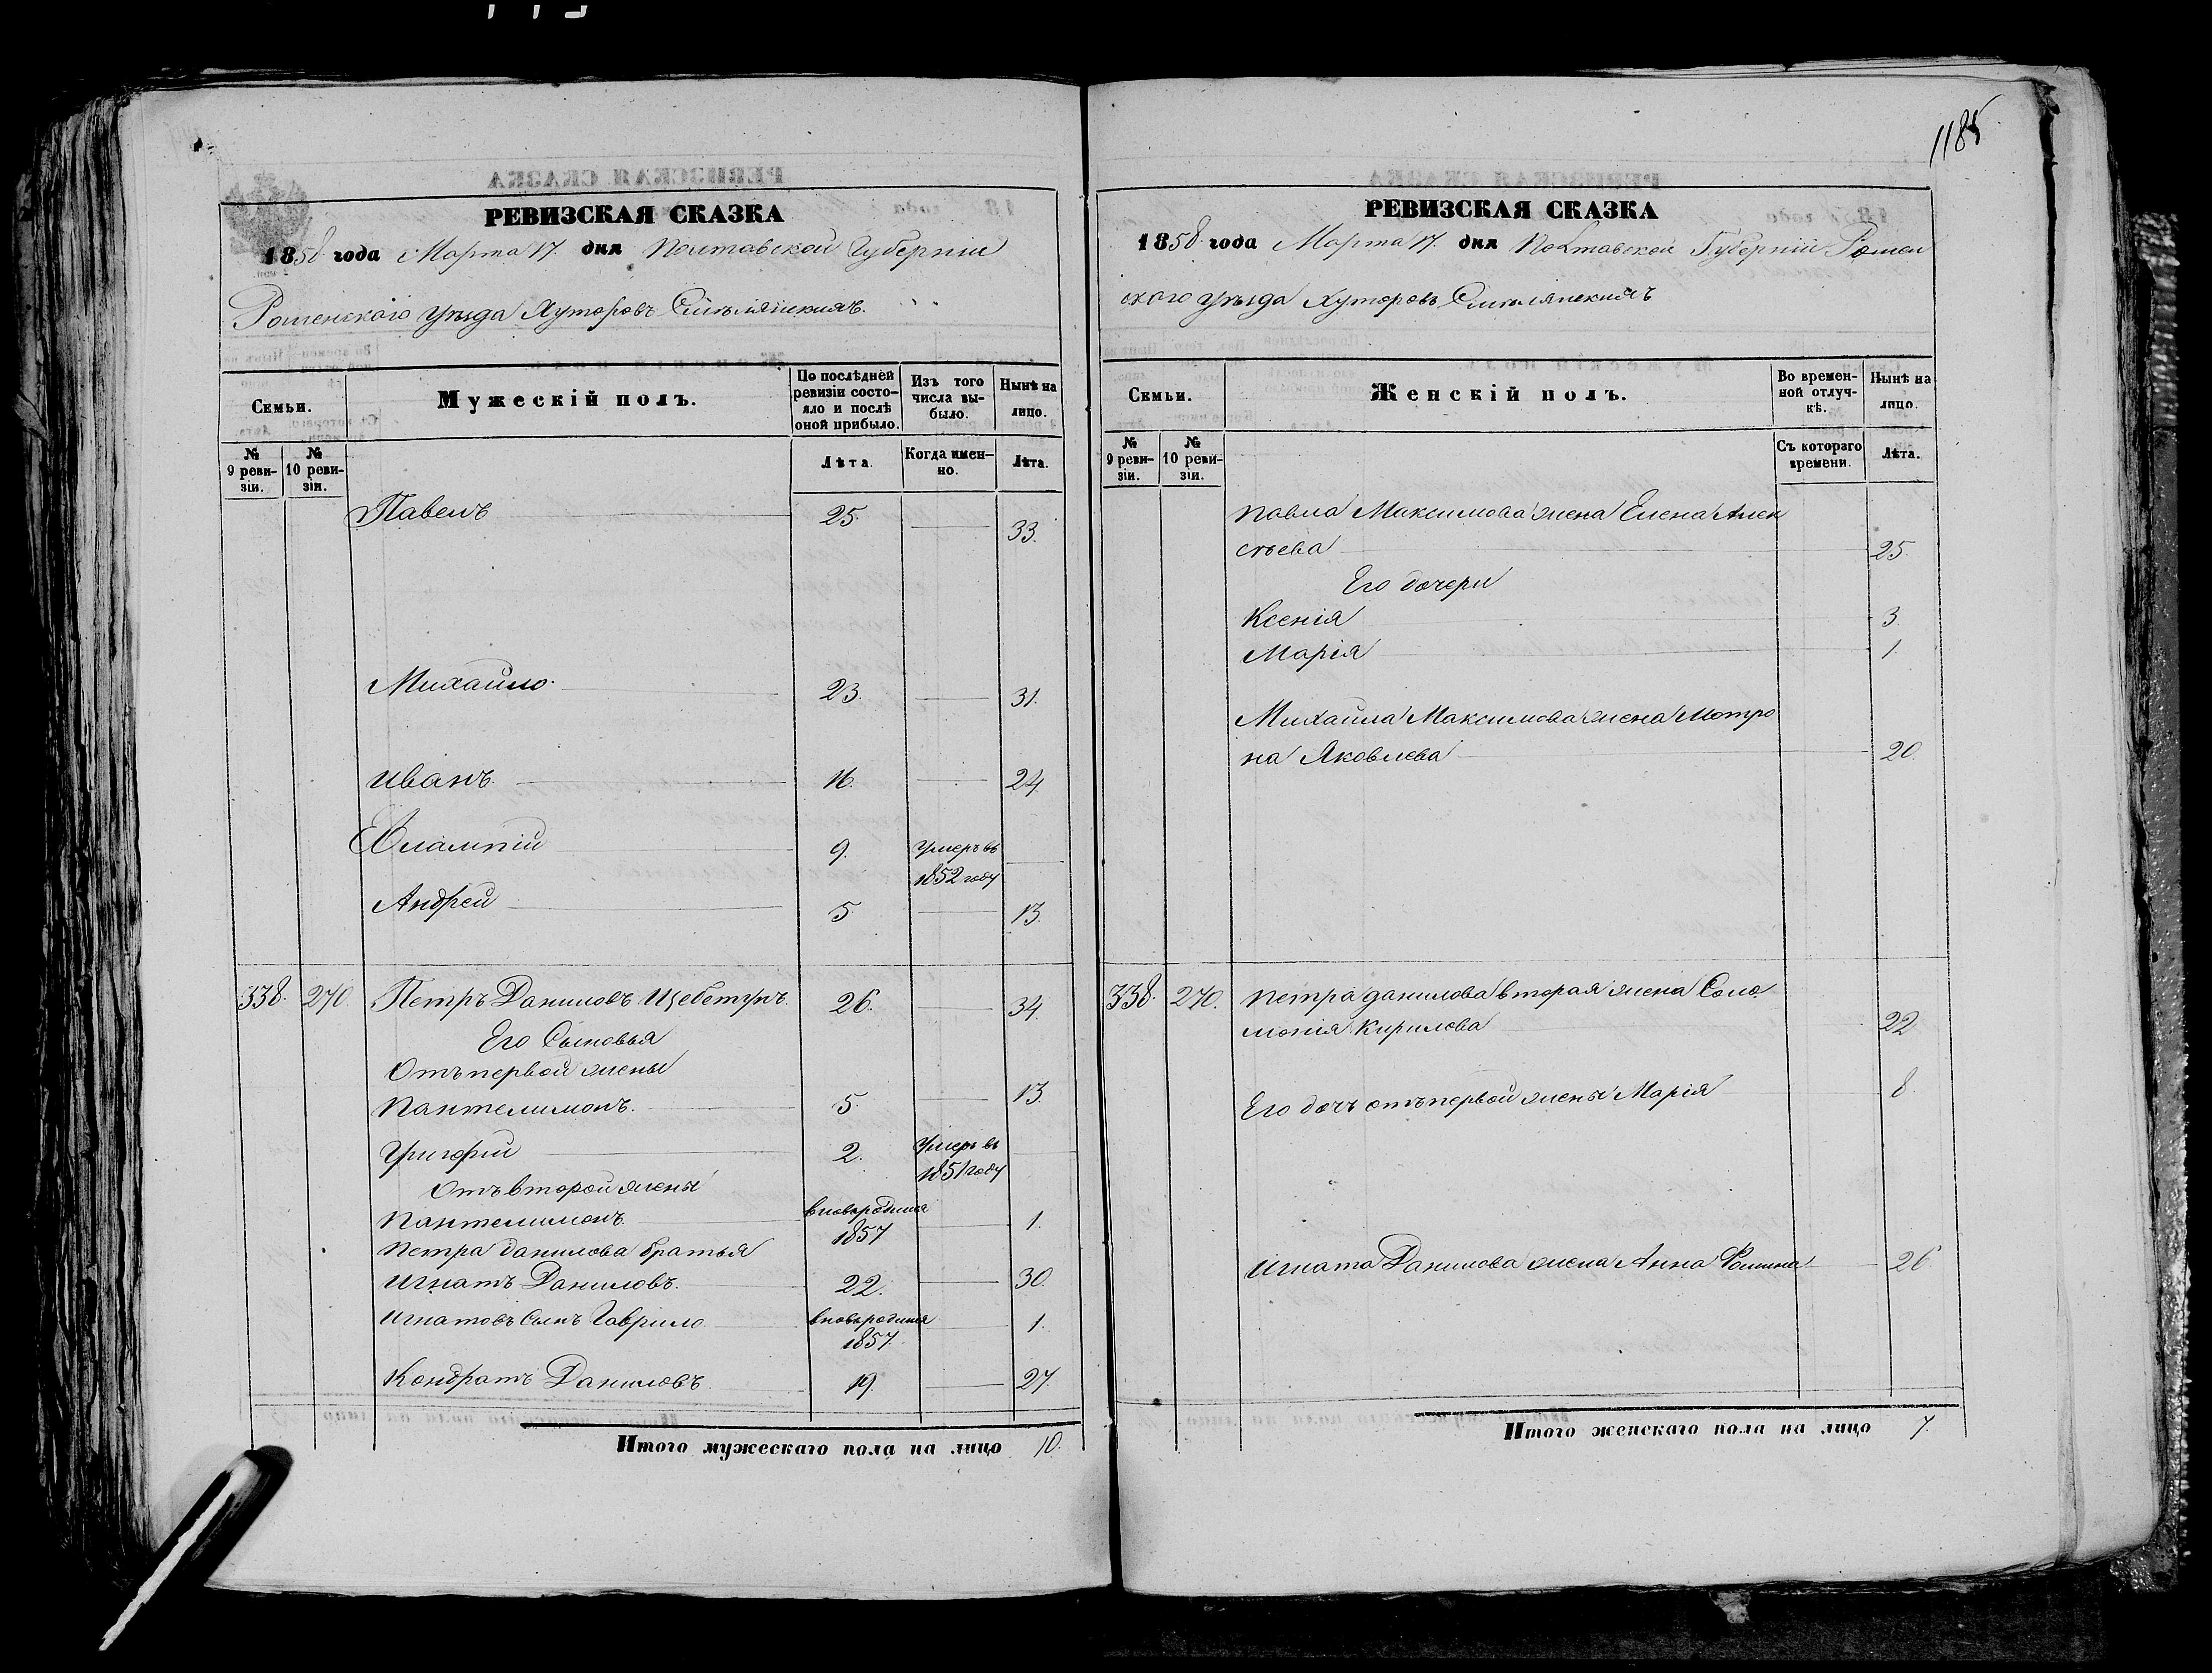 1185
РЕВИЗСКАЯ СКАЗКА
1858 года Марта 17. дня Полтавской Губерніи
Роменского Уѣзда Хуторовъ Смѣлянскихъ.
Семьи.
Мужескій полъ.
По послѣдней ревизіи состо-
яло и послѣ
оной прибыло.
Изъ того
числа вы-
было.
Нынѣ на
лицо.
№
9 реви-
зіи.
№
10 реви-
зіи.
Лѣта.
Когда имен-
но.
Лѣта.
Павелъ 25. 33.
Михайло. 23. 31.
Иванъ. 16. 24.
Евлампій 9. Умеръ въ
1852 году
Андрей 5. 13.
338. 270. Петръ Даниловъ Щебетунъ. 26. 34.
Его Сыновья
Отъ первой жены
Пантелимонъ. 5. 13.
Григорій 2. Умеръ въ
1851 году
Отъ второй жены
Пантелимонъ вновьродился
1857 1.
Петра Данилова братья
Игнатъ Даниловъ. 22. 30.
Игнатовъ Сынъ Гаврило вновьродился
1857. 1.
Кондратъ Даниловъ 19. 27.
Итого мужескаго пола на лицо 10.
РЕВИЗСКАЯ СКАЗКА
1858 года Марта 17. дня Полтавской Губерніи Ромен
ского Уѣзда Хуторовъ Смѣлянскихъ
Семьи.
Женскій полъ.
Во времен-
ной отлуч-
кѣ.
Нынѣ на
лицо.
№
9 реви-
зіи.
№
10 реви-
зіи.
Съ котораго
времени.
Лѣта.
Павла Максимова жена Елена Алек
сѣева 25.
Его дочери
Ксенія 3.
Марія 1.
Михайла Максимова жена Мотро
на Яковлева 20
338. 270. Петра Данилова вторая жена Соло
монія Кирилова 22
Его дочь отъ первой жены Марія 8.
Игната Данилова жена Анна Фомина 26
Итого женскаго пола на лицо 7.